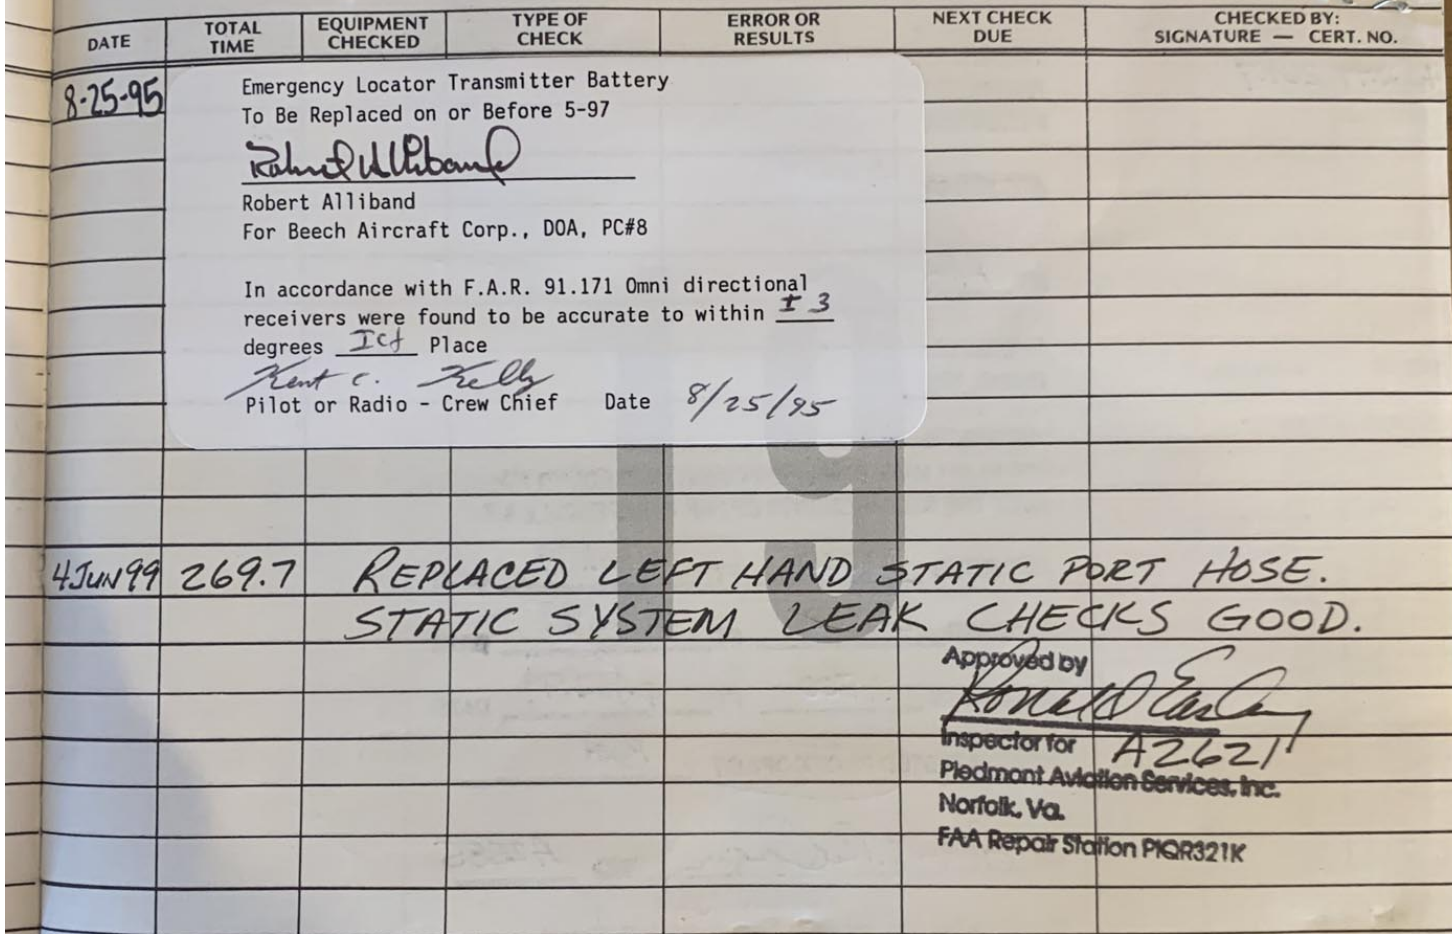 DATE TOTAL TIME EQUIPMENT CHECKED TYPE OF CHECK ERROR OR RESULTS NEXT CHECK DUE CHECKED BY: SIGNATURE — CERT. NO.
8-25-95
Emergency Locator Transmitter Battery
To Be Replaced on or Before 5-97
Robert Alliband
Robert Alliband
For Beech Aircraft Corp., DOA, PC#8
In accordance with F.A.R. 91.171 Omni directional
receivers were found to be accurate to within ± 3
degrees Ict Place
Kent C. Kelly
Pilot or Radio - Crew Chief Date 8/25/95
19
4 JUN 99 269.7 REPLACED LEFT HAND STATIC PORT HOSE.
STATIC SYSTEM LEAK CHECKS GOOD.
Approved by
Ronald Earley
Inspector for A2621
Piedmont Aviation Services, Inc.
Norfolk, Va.
FAA Repair Station PIQR321K